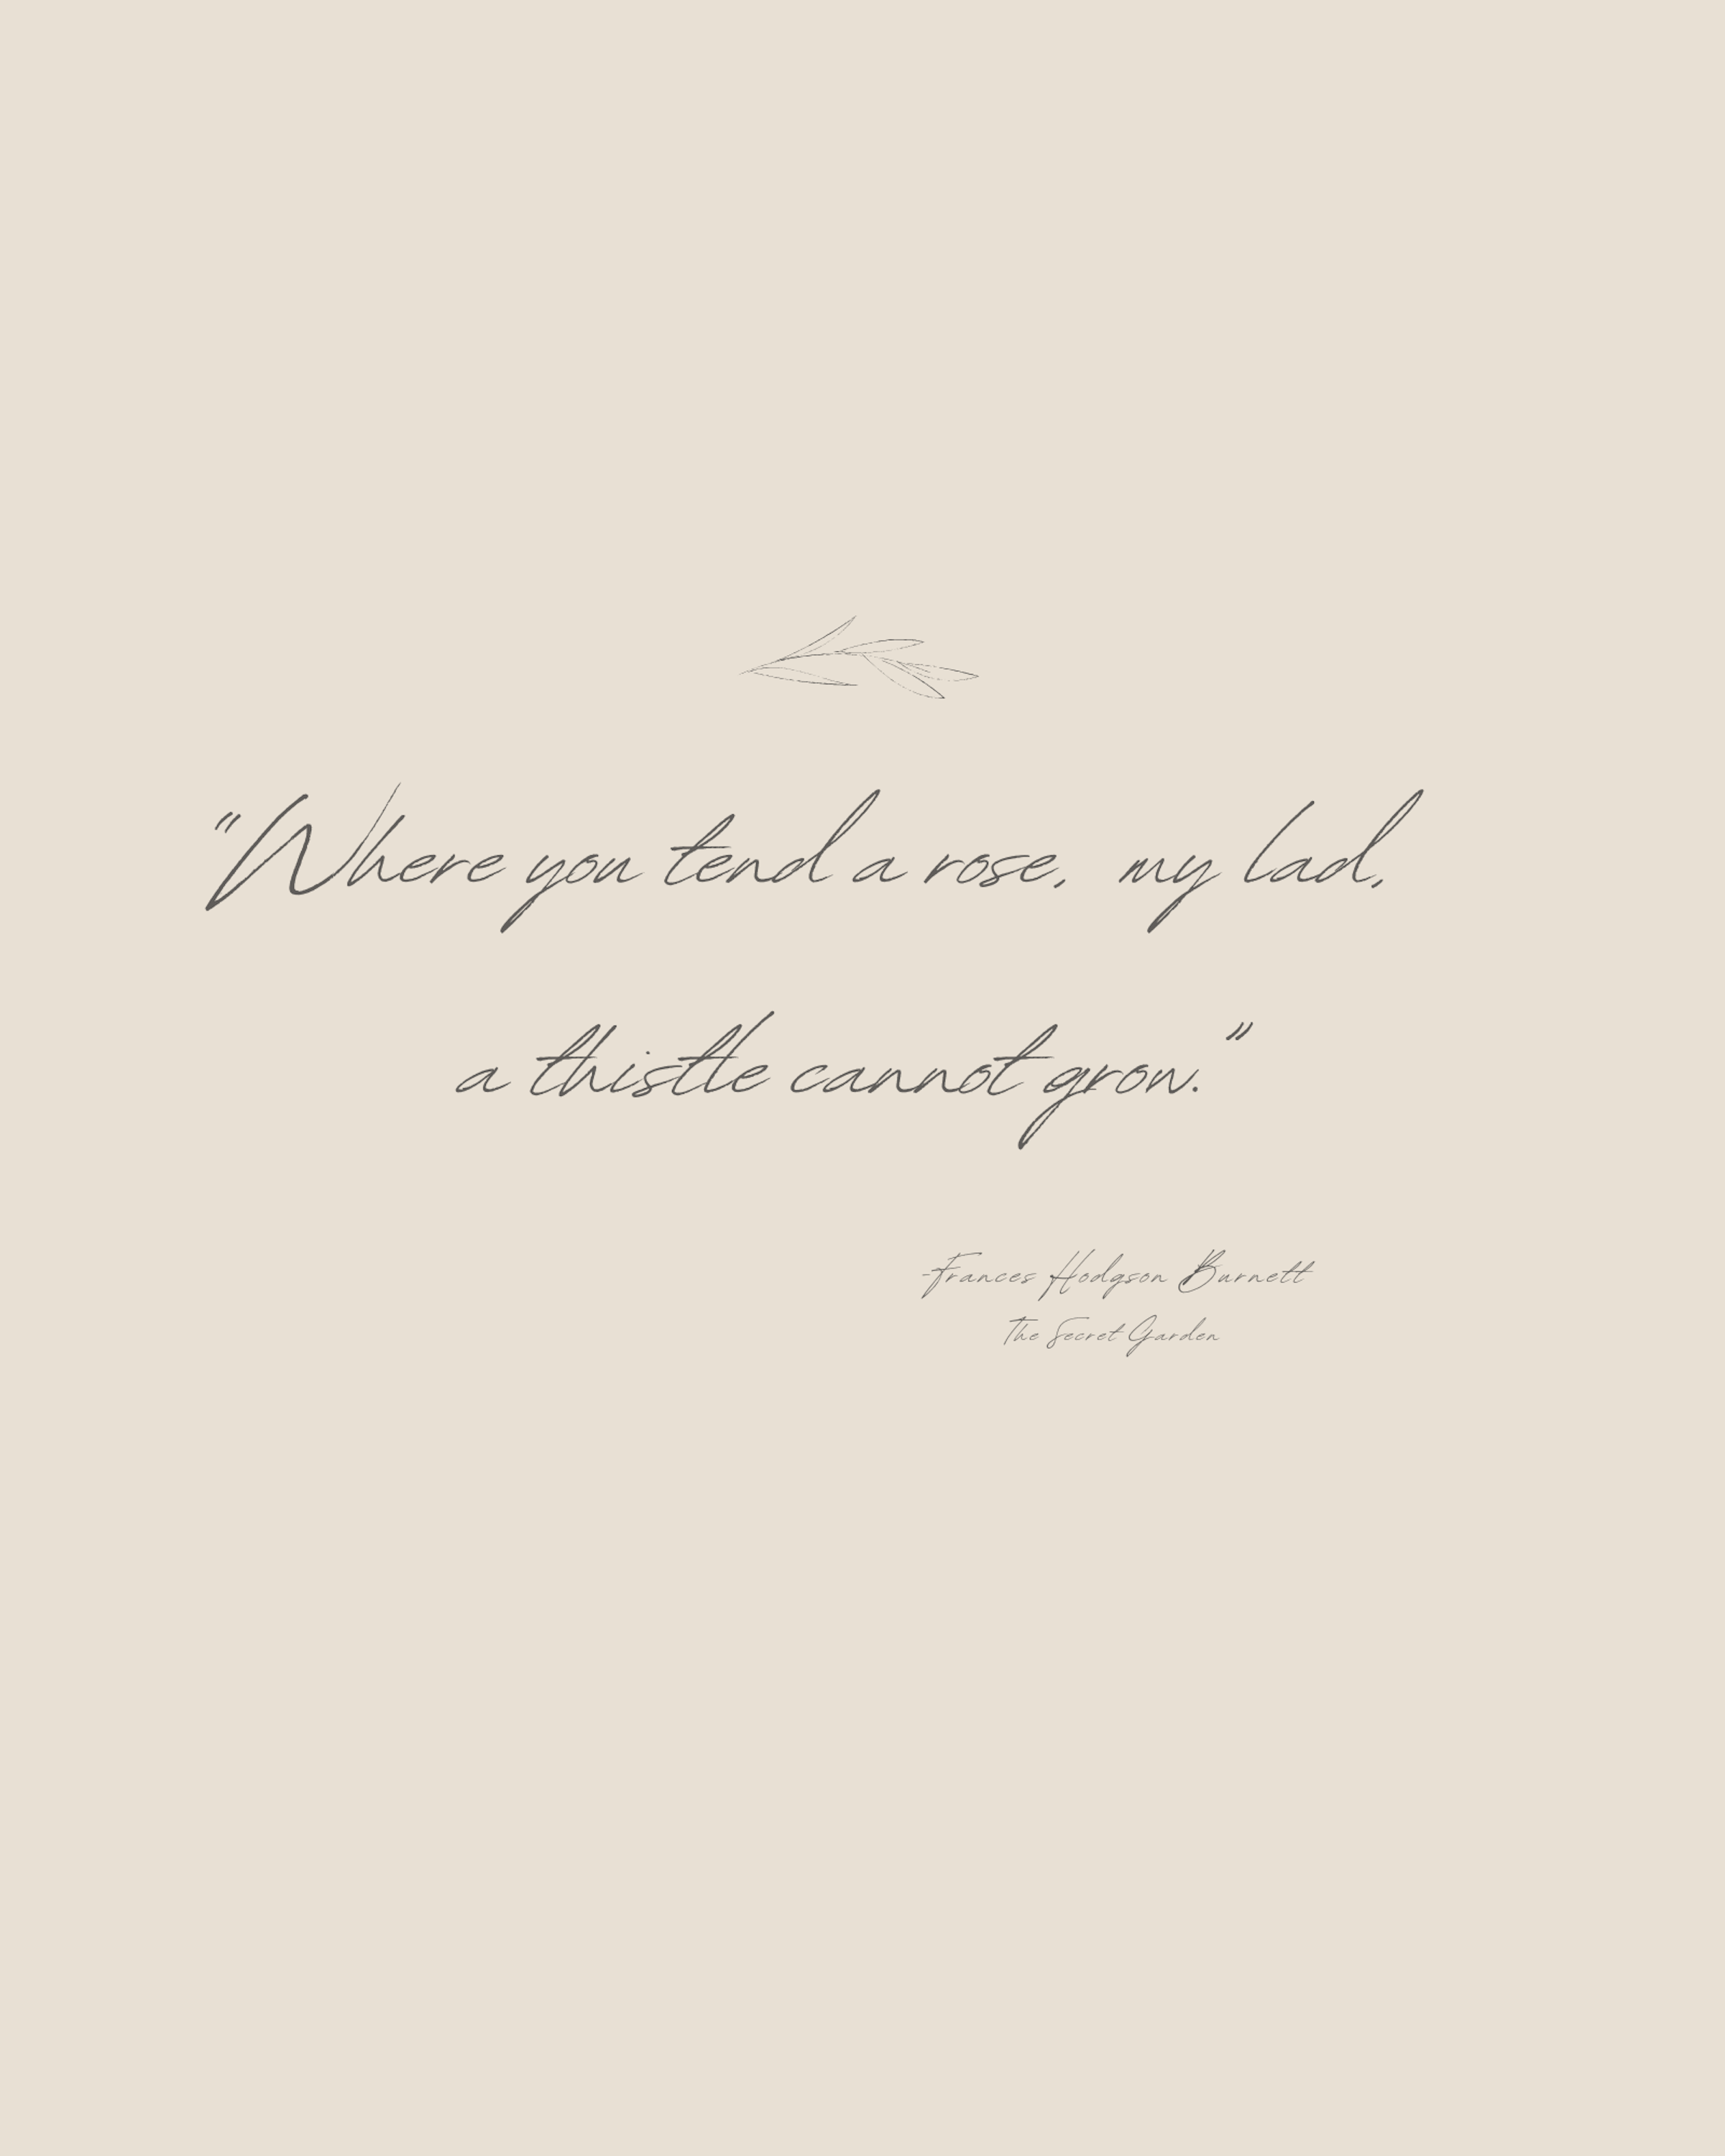 "Where you tend a rose, my lad,
a thistle cannot grow."
-Frances Hodgson Burnett
The Secret Garden